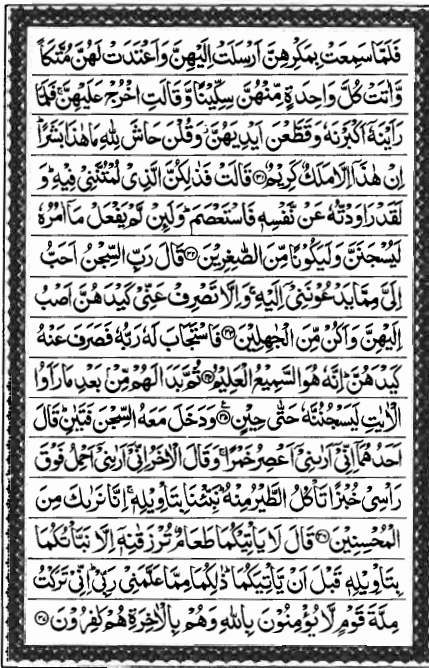 فَلَمَّا سَمِعَتْ بِمَكْرِهِنَّ اَرْسَلَتْ اِلَيْهِنَّ وَاَعْتَدَتْ لَهُنَّ مُتَّكَاً
وَّاٰتَتْ كُلَّ وَاحِدَةٍ مِّنْهُنَّ سِكِّيْنًا وَّقَالَتِ اخْرُجْ عَلَيْهِنَّ ۚ فَلَمَّا
رَاَيْنَهٗۤ اَكْبَرْنَهٗ وَقَطَّعْنَ اَيْدِيَهُنَّ ۫ وَقُلْنَ حَاشَ لِلّٰهِ مَا هٰذَا بَشَرًا ؕ
اِنْ هٰذَاۤ اِلَّا مَلَكٌ كَرِيْمٌ ﴿۳۱﴾ قَالَتْ فَذٰلِكُنَّ الَّذِىْ لُمْتُنَّنِىْ فِيْهِ ؕ وَ
لَقَدْ رَاوَدْتُّهٗ عَنْ نَّفْسِهٖ فَاسْتَعْصَمَ ؕ وَلَئِنْ لَّمْ يَفْعَلْ مَاۤ اٰمُرُهٗ
لَيُسْجَنَنَّ وَلَيَكُوْنًا مِّنَ الصّٰغِرِيْنَ ﴿۳۲﴾ قَالَ رَبِّ السِّجْنُ اَحَبُّ
اِلَىَّ مِمَّا يَدْعُوْنَنِىْۤ اِلَيْهِ ۚ وَاِلَّا تَصْرِفْ عَنِّىْ كَيْدَهُنَّ اَصْبُ
اِلَيْهِنَّ وَاَكُنْ مِّنَ الْجٰهِلِيْنَ ﴿۳۳﴾ فَاسْتَجَابَ لَهٗ رَبُّهٗ فَصَرَفَ عَنْهُ
كَيْدَهُنَّ ؕ اِنَّهٗ هُوَ السَّمِيْعُ الْعَلِيْمُ ﴿۳۴﴾ ثُمَّ بَدَا لَهُمْ مِّنْۢ بَعْدِ مَا رَاَوُا
الْاٰيٰتِ لَيَسْجُنُنَّهٗ حَتّٰى حِيْنٍ ﴿۳۵﴾ وَدَخَلَ مَعَهُ السِّجْنَ فَتَيٰنِ ؕ قَالَ
اَحَدُهُمَاۤ اِنِّىْۤ اَرٰىنِىْۤ اَعْصِرُ خَمْرًا ۚ وَقَالَ الْاٰخَرُ اِنِّىْۤ اَرٰىنِىْۤ اَحْمِلُ فَوْقَ
رَاْسِىْ خُبْزًا تَاْكُلُ الطَّيْرُ مِنْهُ ؕ نَبِّئْنَا بِتَاْوِيْلِهٖ ۚ اِنَّا نَرٰىكَ مِنَ
الْمُحْسِنِيْنَ ﴿۳۶﴾ قَالَ لَا يَاْتِيْكُمَا طَعَامٌ تُرْزَقٰنِهٖۤ اِلَّا نَبَّاْتُكُمَا
بِتَاْوِيْلِهٖ قَبْلَ اَنْ يَّاْتِيَكُمَا ؕ ذٰلِكُمَا مِمَّا عَلَّمَنِىْ رَبِّىْ ؕ اِنِّىْ تَرَكْتُ
مِلَّةَ قَوْمٍ لَّا يُؤْمِنُوْنَ بِاللّٰهِ وَهُمْ بِالْاٰخِرَةِ هُمْ كٰفِرُوْنَ ﴿۳۷﴾